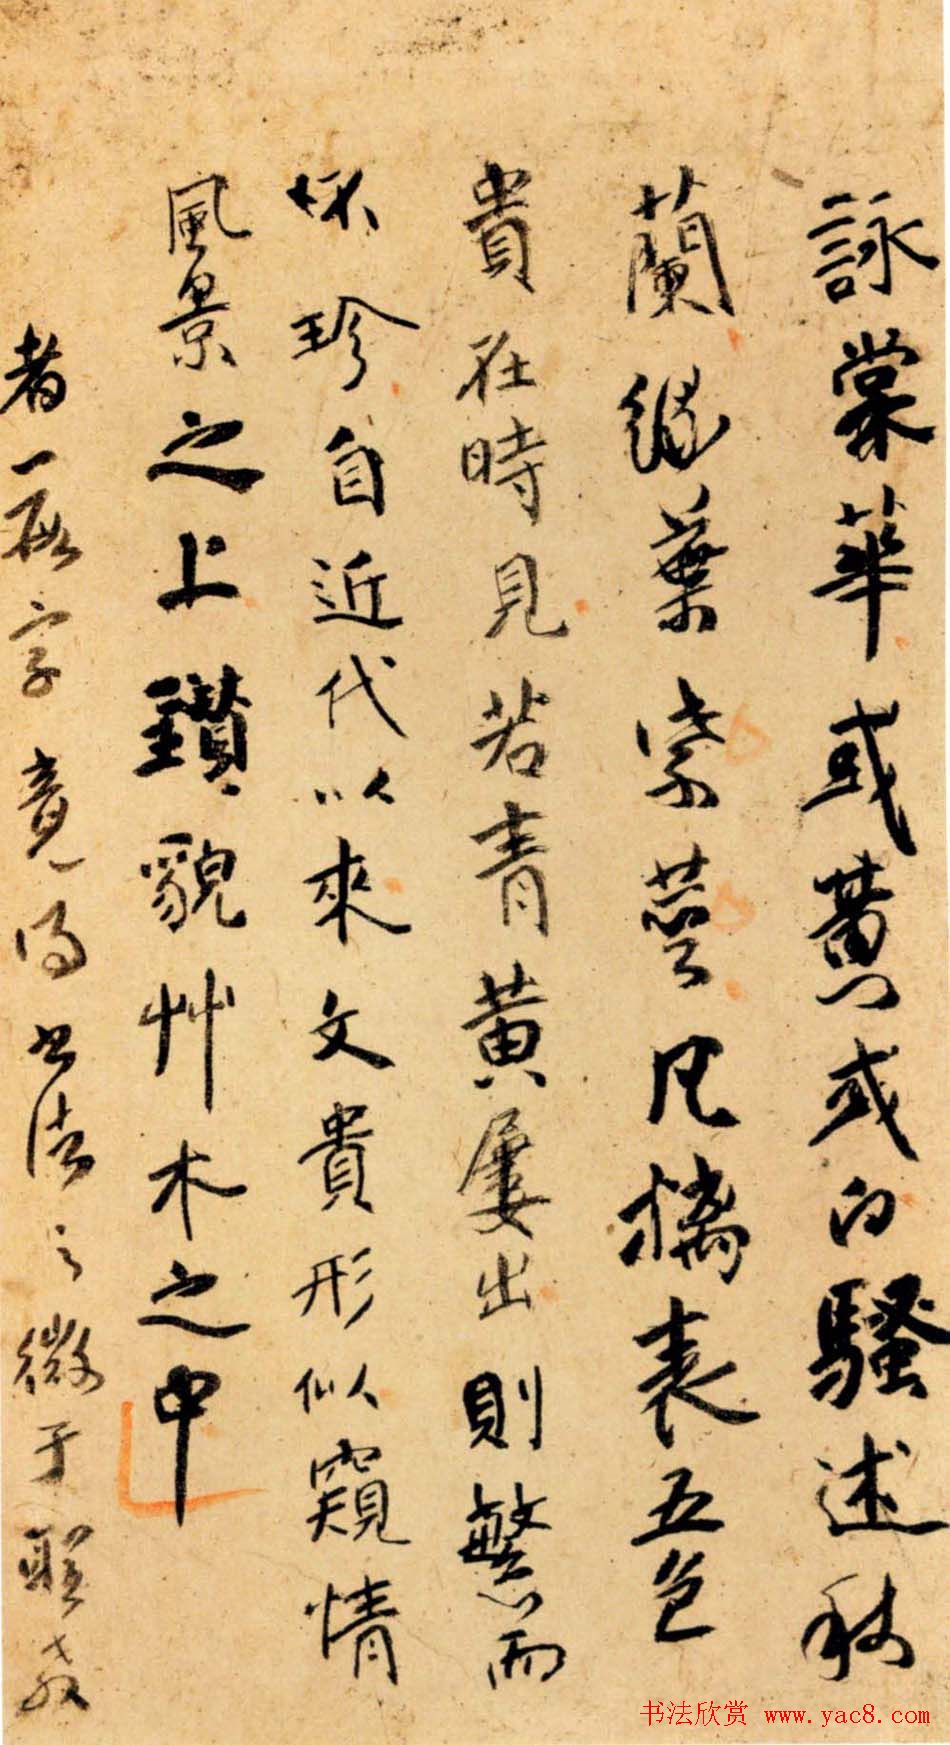 詠棠華或黃或白騷述秋
蘭綠葉紫莖凡摛表五色
貴在時見若青黃屢出則繁而
不珍自近代以來文貴形似窺情
風景之上鑽貌艸木之中
者一段字竟得書法之微于
书法欣赏 www.yac8.com